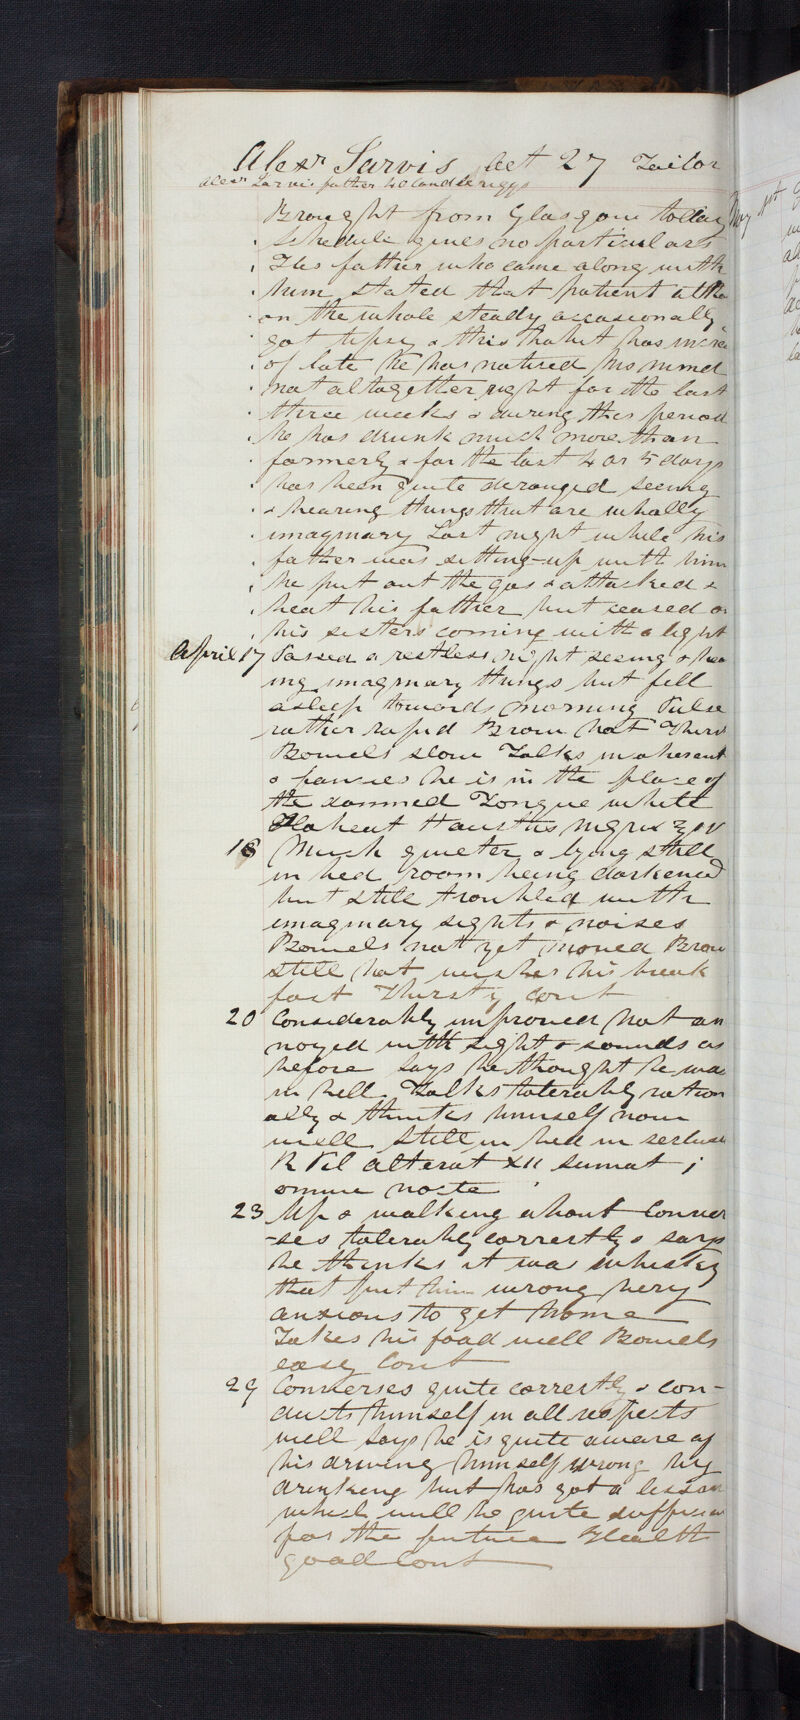 Alexr Jarvis Aet 27 Tailor
Alexr Jarvis father 40 Candleriggs
Brought from Glasgow today
Schedule gives no particulars
His father who came along with
him stated that patient altho
on the whole steady occasionally
got tipsy & this habit has increa
of late He has noticed his mind
not altogether right for the last
three weeks & during this period
he has drunk much more than
formerly & for the last 4 or 5 days
has been quite deranged seeing
& hearing things that are wholly
imaginary Last night while his
father was sitting up with him
he put out the gas & attacked &
beat his father but ceased on
his sisters coming with a light
April 17 Passed a restless night seeing & hear
ing imaginary things but fell
asleep towards morning Pulse
rather rapid Brow hot Thirst
Bowels slow Talks incoherent
& fancies he is in the place of
the damned Tongue white
Habeat Haustus nigrix
18 Much quieter & lying still
in bed room being darkened
but still troubled with
imaginary sights & noises
Bowels not yet moved Brow
still hot wishes his break
fast Thirsty Cont
20 Considerably improved Not an
noyed with sight & sounds as
before Says he thought he was
in hell Talks tolerably ration
ally & thinks himself now
well Still in bed in seclusi
R Pil alterat XII sumat i
omne nocte
23 Up & walking about Conver
-ses tolerably correctly & says
he thinks it was whiskey
that put him wrong Very
anxious to get home
Takes his food well Bowels
easy Cont
29 Converses quite correctly & con-
ducts himself in all respects
well Says he is quite aware of
his driving himself wrong by
drinking but has got a lesson
which will be quite sufficien
for the future Health
good Cont
May 1st